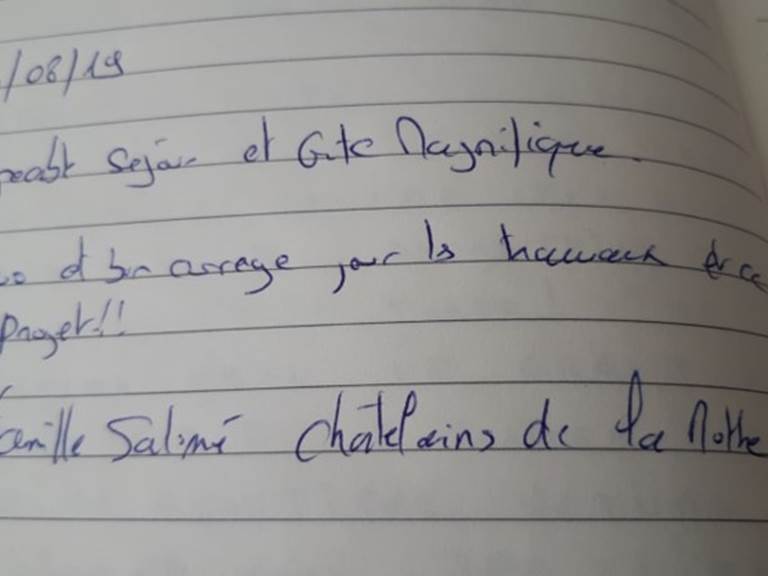 /08/19
Séjour et Gite Magnifique.
et bon courage pour les travaux de ce
Projet!!
Famille Salimé Châtelains de la Mothe